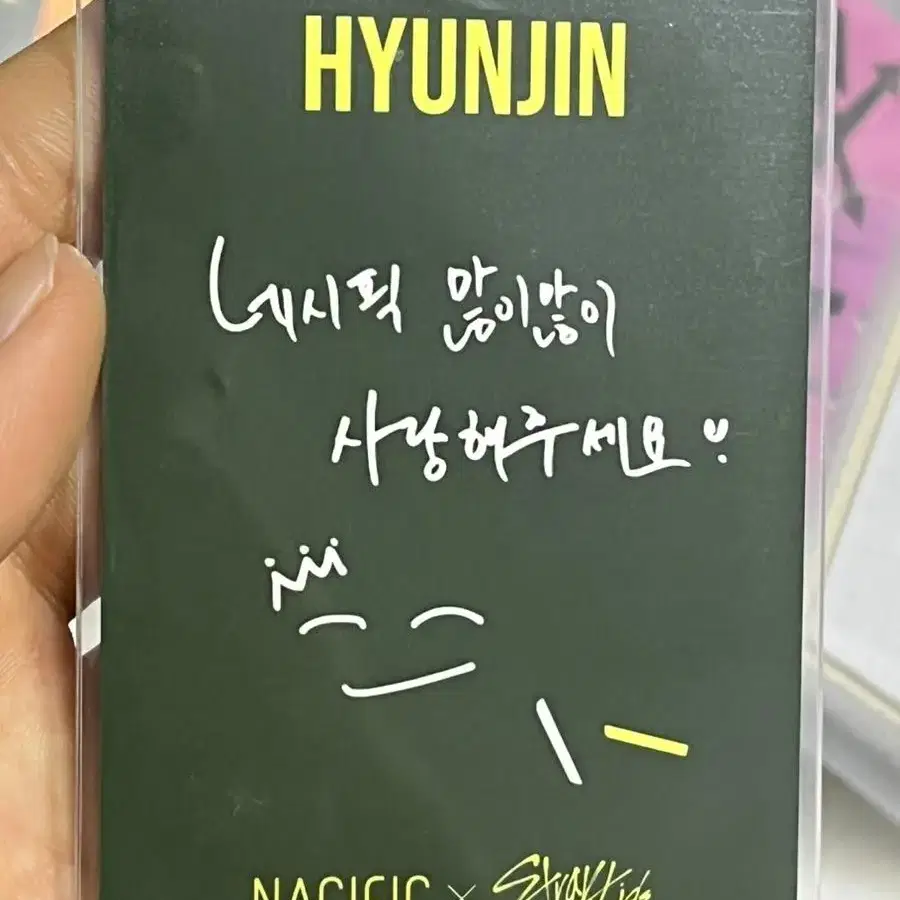 HYUNJIN
네시픽 많이많이
사랑해주세요
NACIFIC × Stray Kids